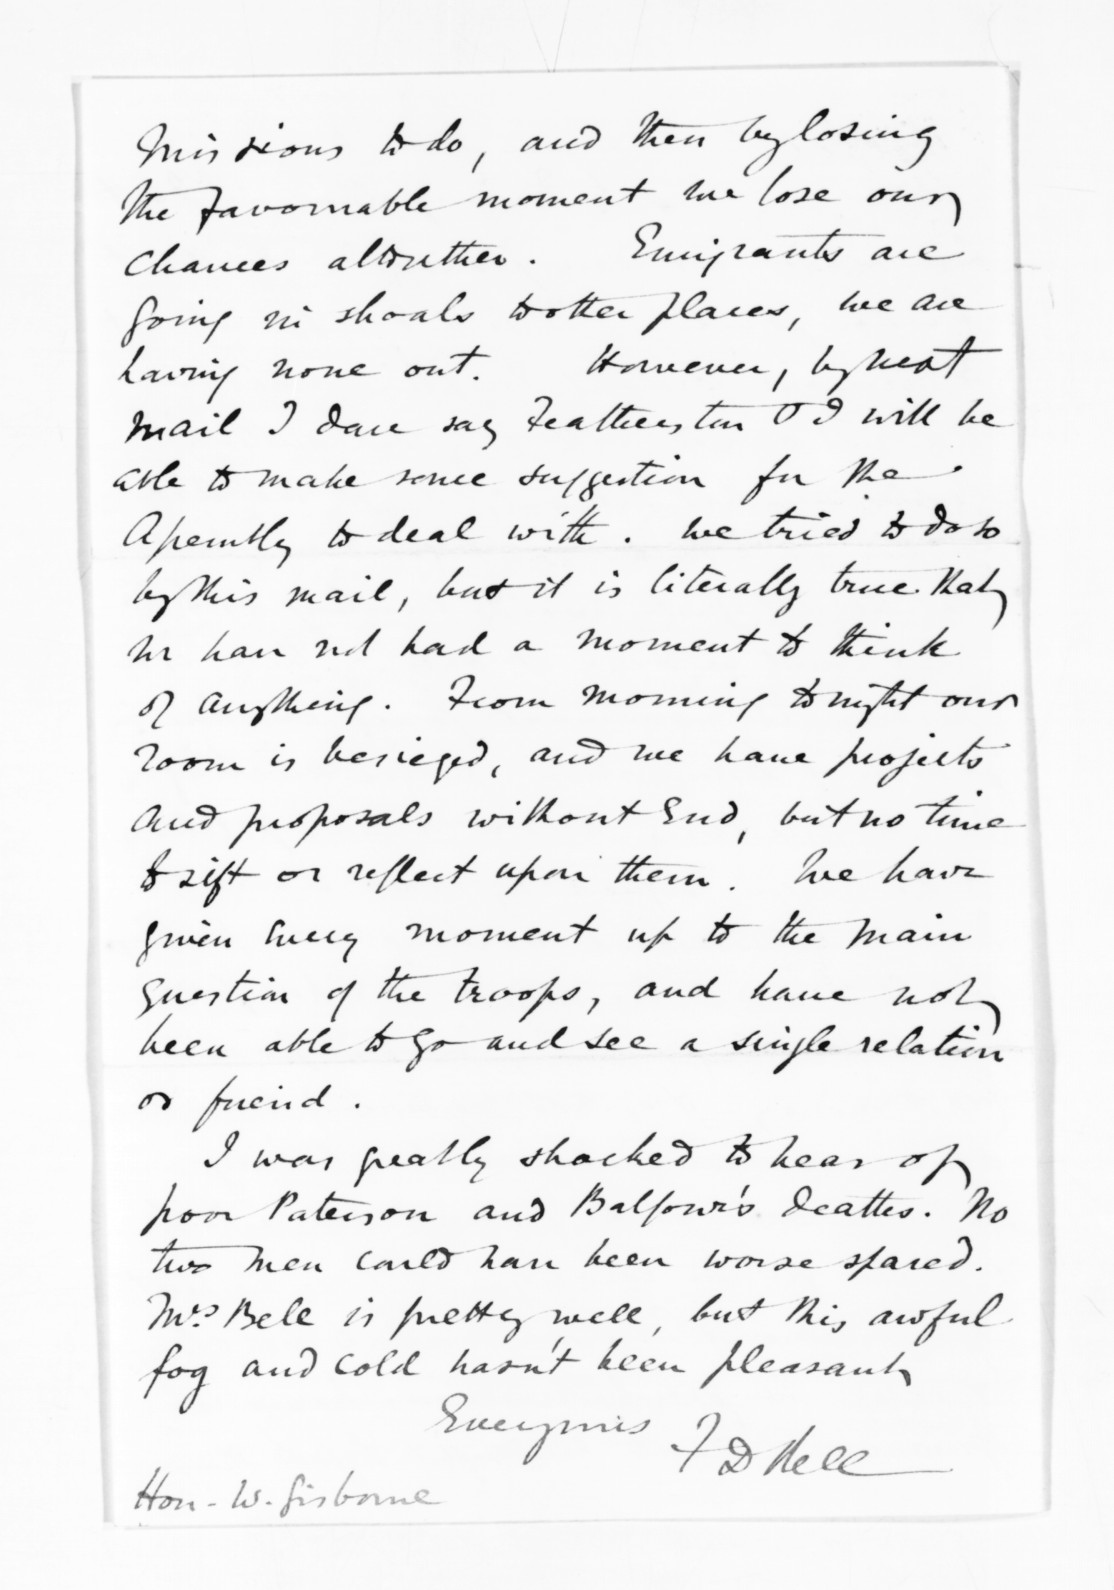 missions to do, and then by losing
the favourable moment we lose our
chances altogether. Emigrants are
going in shoals to other places, we are
having none out. However, by next
mail I dare say Featherston & I will be
able to make some suggestion for the
Assembly to deal with. We tried to do so
by this mail, but it is literally true that
we have not had a moment to think
of anything. From morning to night our
room is besieged, and we have projects
and proposals without end, but no time
to sift or reflect upon them. We have
given every moment up to the main
question of the troops, and have not
been able to go and see a single relation
or friend.
I was greatly shocked to hear of
poor Paterson and Balfour's deaths. No
two men could have been worse spared.
Mrs. Bell is pretty well, but this awful
fog and cold hasn't been pleasant
Ever yours
F D Bell
Hon. W. Gisborne